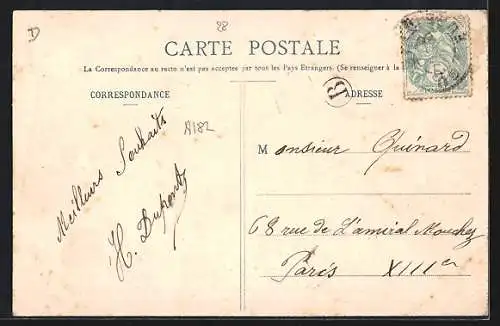 D
28
CARTE POSTALE
La Correspondance au recto n'est pas acceptée par tous les Pays Etrangers. (Se renseigner à la
CORRESPONDANCE
D
ADRESSE
A182
Meilleurs Souhaits
H. Dupont
Monsieur Guénard
68 rue de L'amiral Mouchez
Paris XIIIe